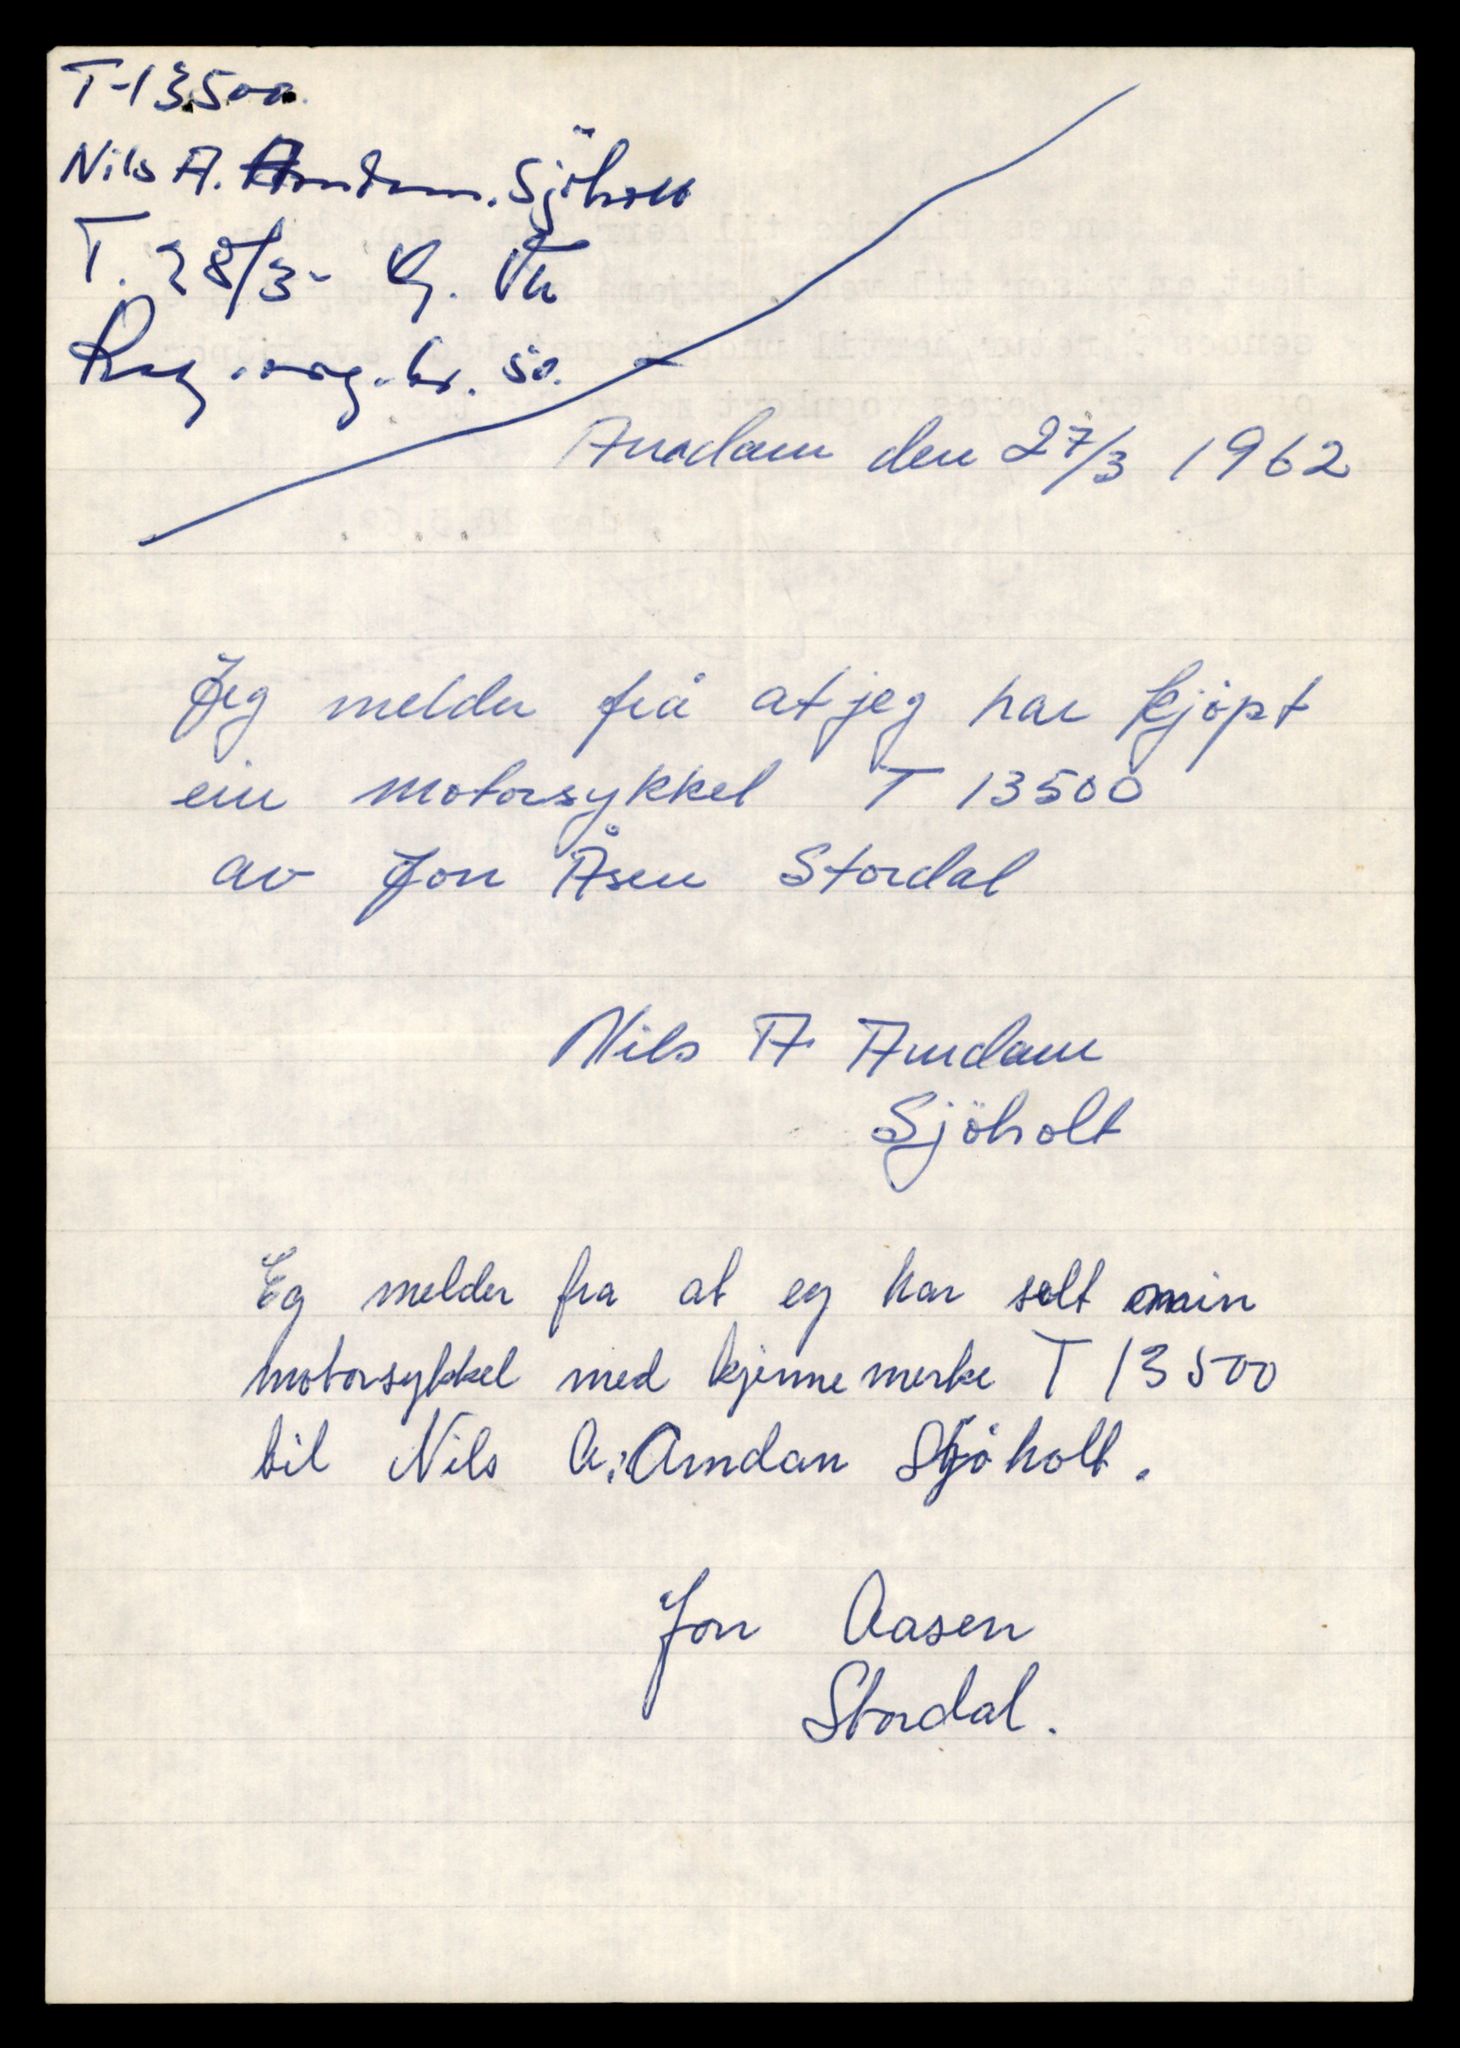 T-13500.
Nils A. Amdam. Sjöholt
T. 28/3-
Reg. avg. kr. 50.
Amdam den 27/3 1962
Jeg melder frå at jeg har kjöpt
ein motorsykkel T 13500
av Jon Åsen Stordal
Nils A Amdam
Sjöholt
Eg melder fra at eg har selt min
motorsykkel med kjennemerke T 13500
til Nils A. Amdam Sjöholt.
Jon Aasen
Stordal.